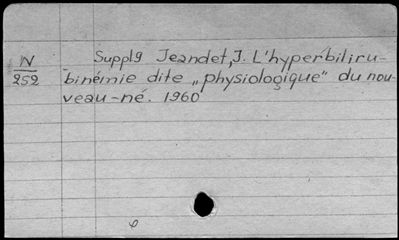 N
252
Suppl9 Jeandet, J. L'hyperbiliru-
binémie dite „physiologique" du nou-
veau-né. 1960
φ